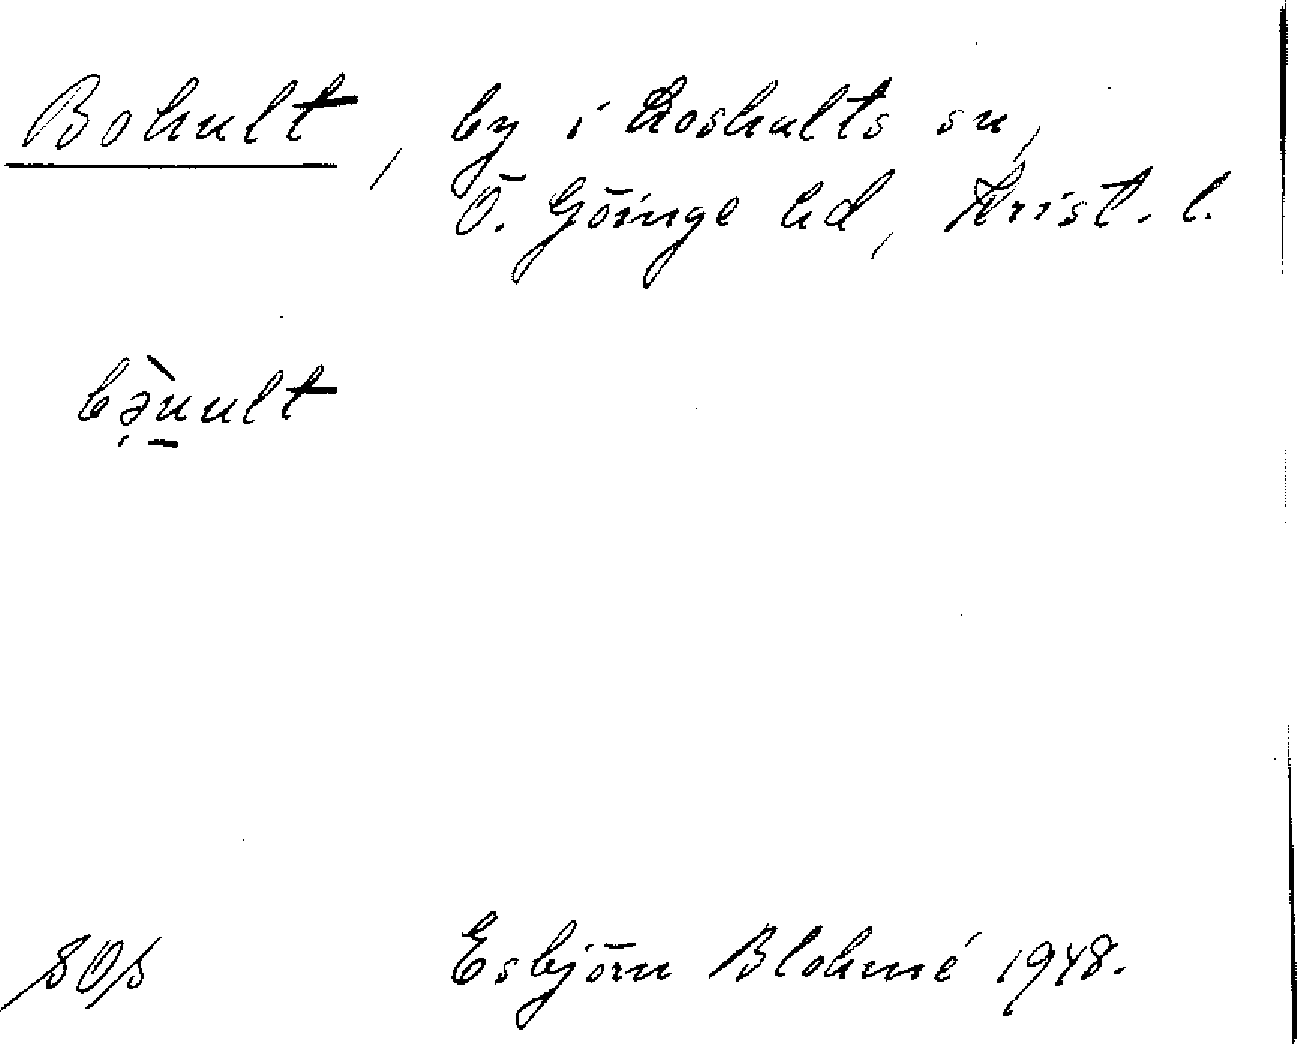 Bohult, by i Loshults sn,
Ö. Göinge hd, Krist. l.
Esbjörn Blohmé 1948.